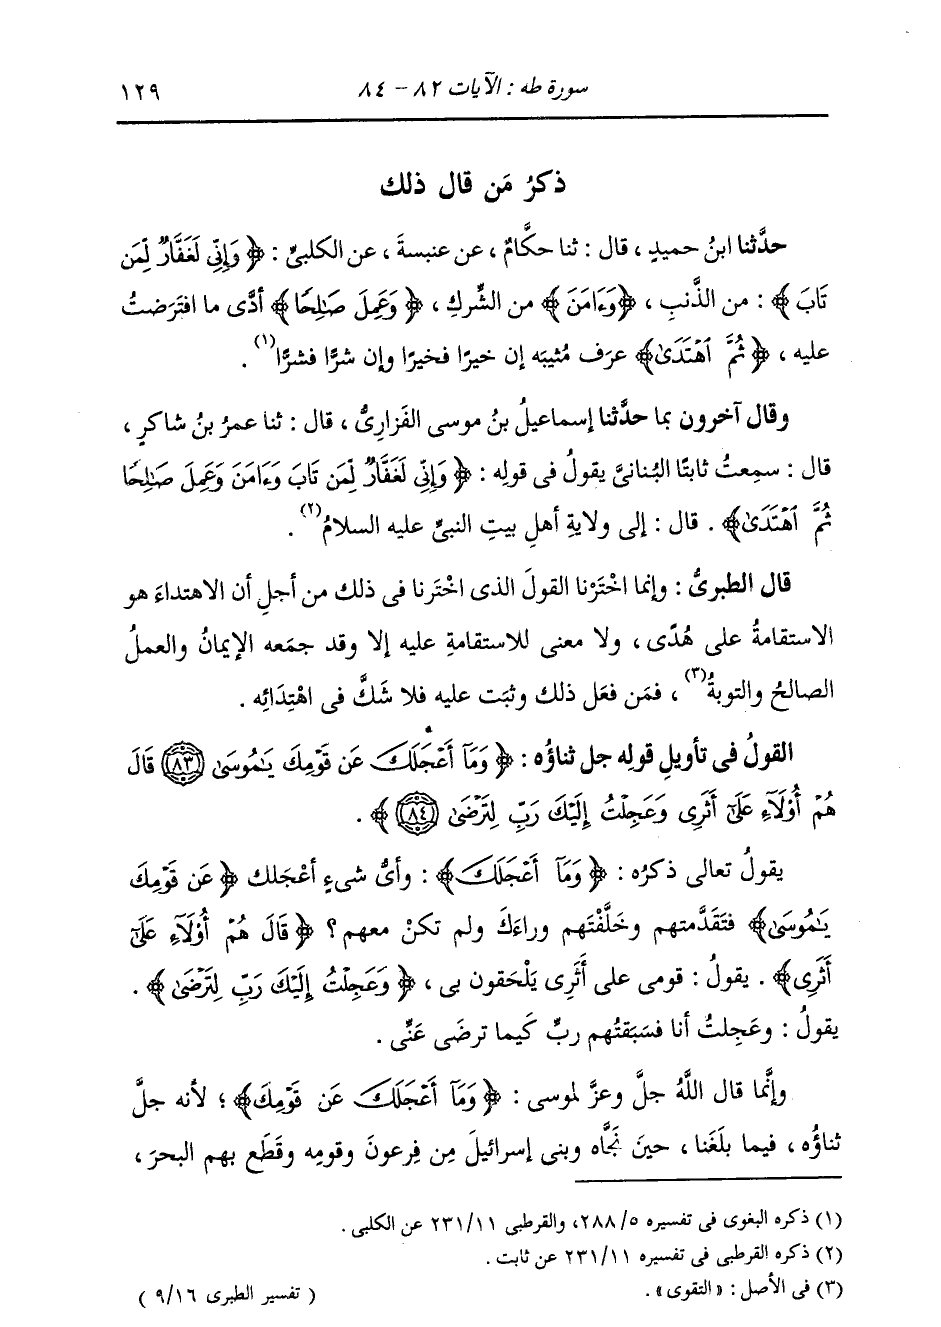 سورة طه : الآيات ٨٢ - ٨٤ ١٢٩
ذكرُ مَن قال ذلك
حدَّثنا ابنُ حميدٍ ، قال : ثنا حكَّامٌ ، عن عنبسةَ ، عن الكلبىِّ : ﴿ وَإِنِّي لَغَفَّارٌ لِّمَن
تَابَ ﴾ : من الذَّنبِ ، ﴿وَءَامَنَ ﴾ من الشِّركِ ، ﴿ وَعَمِلَ صَٰلِحًا ﴾ أدَّى ما افتَرَضتُ
عليه ، ﴿ ثُمَّ ٱهْتَدَىٰ﴾ عرَف مُثيبَه إن خيرًا فخيرًا وإن شرًّا فشرًّا(١) .
وقال آخرون بما حدَّثنا إسماعيلُ بنُ موسى الفَزارىُّ ، قال : ثنا عمرُ بنُ شاكرٍ ،
قال : سمِعتُ ثابتًا البُنانىَّ يقولُ فى قولِه : ﴿ وَإِنِّي لَغَفَّارٌ لِّمَن تَابَ وَءَامَنَ وَعَمِلَ صَٰلِحًا
ثُمَّ ٱهْتَدَىٰ﴾ . قال : إلى ولايةِ أهلِ بيتِ النبىِّ عليه السلامُ(٢) .
قال الطبرىُّ : وإنما اخْتَرْنا القولَ الذى اخْتَرنا فى ذلك من أجلِ أن الاهتداءَ هو
الاستقامةُ على هُدًى ، ولا معنى للاستقامةِ إلا وقد جمَعه الإيمانُ والعملُ
الصالحُ والتوبةُ(٣) ، فمَن فعَل ذلك وثبَت عليه فلا شَكَّ فى اهْتِدَائِه .
القولُ فى تأويلِ قولِه جل ثناؤُه : ﴿ وَمَآ أَعْجَلَكَ عَن قَوْمِكَ يَٰمُوسَىٰ ٨٣ قَالَ
هُمْ أُوْلَآءِ عَلَىٰٓ أَثَرِى وَعَجِلْتُ إِلَيْكَ رَبِّ لِتَرْضَىٰ ٨٤ ﴾ .
يقولُ تعالى ذكرُه : ﴿ وَمَآ أَعْجَلَكَ﴾ : وأىُّ شىءٍ أعْجَلك ﴿ عَن قَوْمِكَ
يَٰمُوسَىٰ﴾ فتَقَدَّمتهم وخَلَّفْتَهم وراءَكَ ولم تكنْ معهم ؟ ﴿ قَالَ هُمْ أُوْلَآءِ عَلَىٰٓ
أَثَرِى﴾ . يقولُ : قومى على أَثَرِى يَلْحَقون بى ، ﴿ وَعَجِلْتُ إِلَيْكَ رَبِّ لِتَرْضَىٰ ﴾ .
يقولُ : وعَجِلتُ أنا فسَبَقتُهم ربِّ كَيما ترضَى عَنِّى .
وإنَّما قال اللَّهُ جلَّ وعزَّ لموسى : ﴿ وَمَآ أَعْجَلَكَ عَن قَوْمِكَ﴾ ؛ لأنه جلَّ
ثناؤُه ، فيما بلَغَنا ، حينَ نَجَّاه وبنى إسرائيلَ مِن فِرعونَ وقومِه وقَطَع بهم البحرَ ،
(١) ذكره البغوى فى تفسيره ٥/ ٢٨٨، والقرطبى ١١/ ٢٣١ عن الكلبى .
(٢) ذكره القرطبى فى تفسيره ١١/ ٢٣١ عن ثابت .
(٣) فى الأصل : «التقوى» . ( تفسير الطبرى ٩/١٦ )